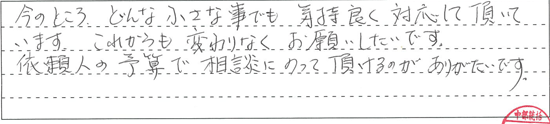 今のところ、どんな小さな事でも 気持良く対応して頂いて
います。これからも変わりなくお願いしたいです。
依頼人の予算で相談にのって頂けるのがありがたいです。